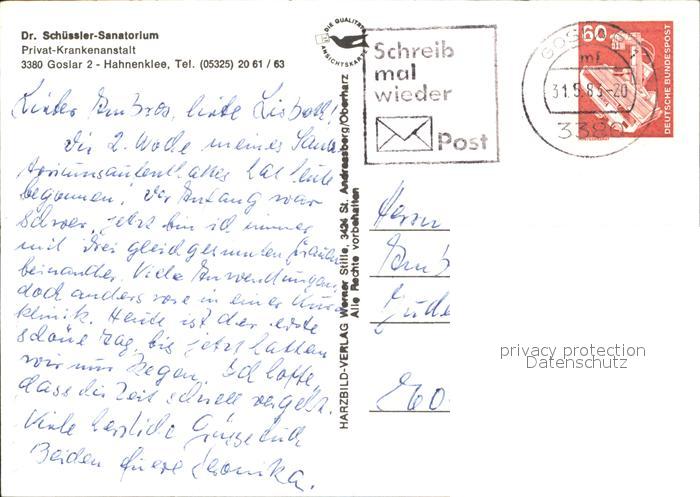 Dr. Schüssler-Sanatorium
Privat-Krankenanstalt
3380 Goslar 2 - Hahnenklee, Tel. (05325) 20 61 / 63
Lieber Ambros, liebe Lisbeth!
Die 2. Woche meines Sana-
toriumsaufenthaltes hat heute
begonnen. Der Anfang war
schwer, jetzt bin ich immer
mit drei gleichgesinnten Frauen
beinander. Viele Anwendungen,
doch anders wie in einer Kur-
klinik. Heute ist der erste
schöne Tag, bis jetzt hatten
wir nur Regen. Ich hoffe,
dass die Zeit schnell vergeht.
Viele herzliche Grüsse Euch
Beiden Eure Veronika.
DIE QUALITÄTS
ANSICHTSKARTE
HARZBILD-VERLAG Werner Stille, 3424 St. Andreasberg/Oberharz
Alle Rechte vorbehalten
Schreib
mal
wieder
Post
GOSLAR
mf
31.5.83-20
3380
60
DEUTSCHE BUNDESPOST
Herrn
Amb
privacy protection
Datenschutz